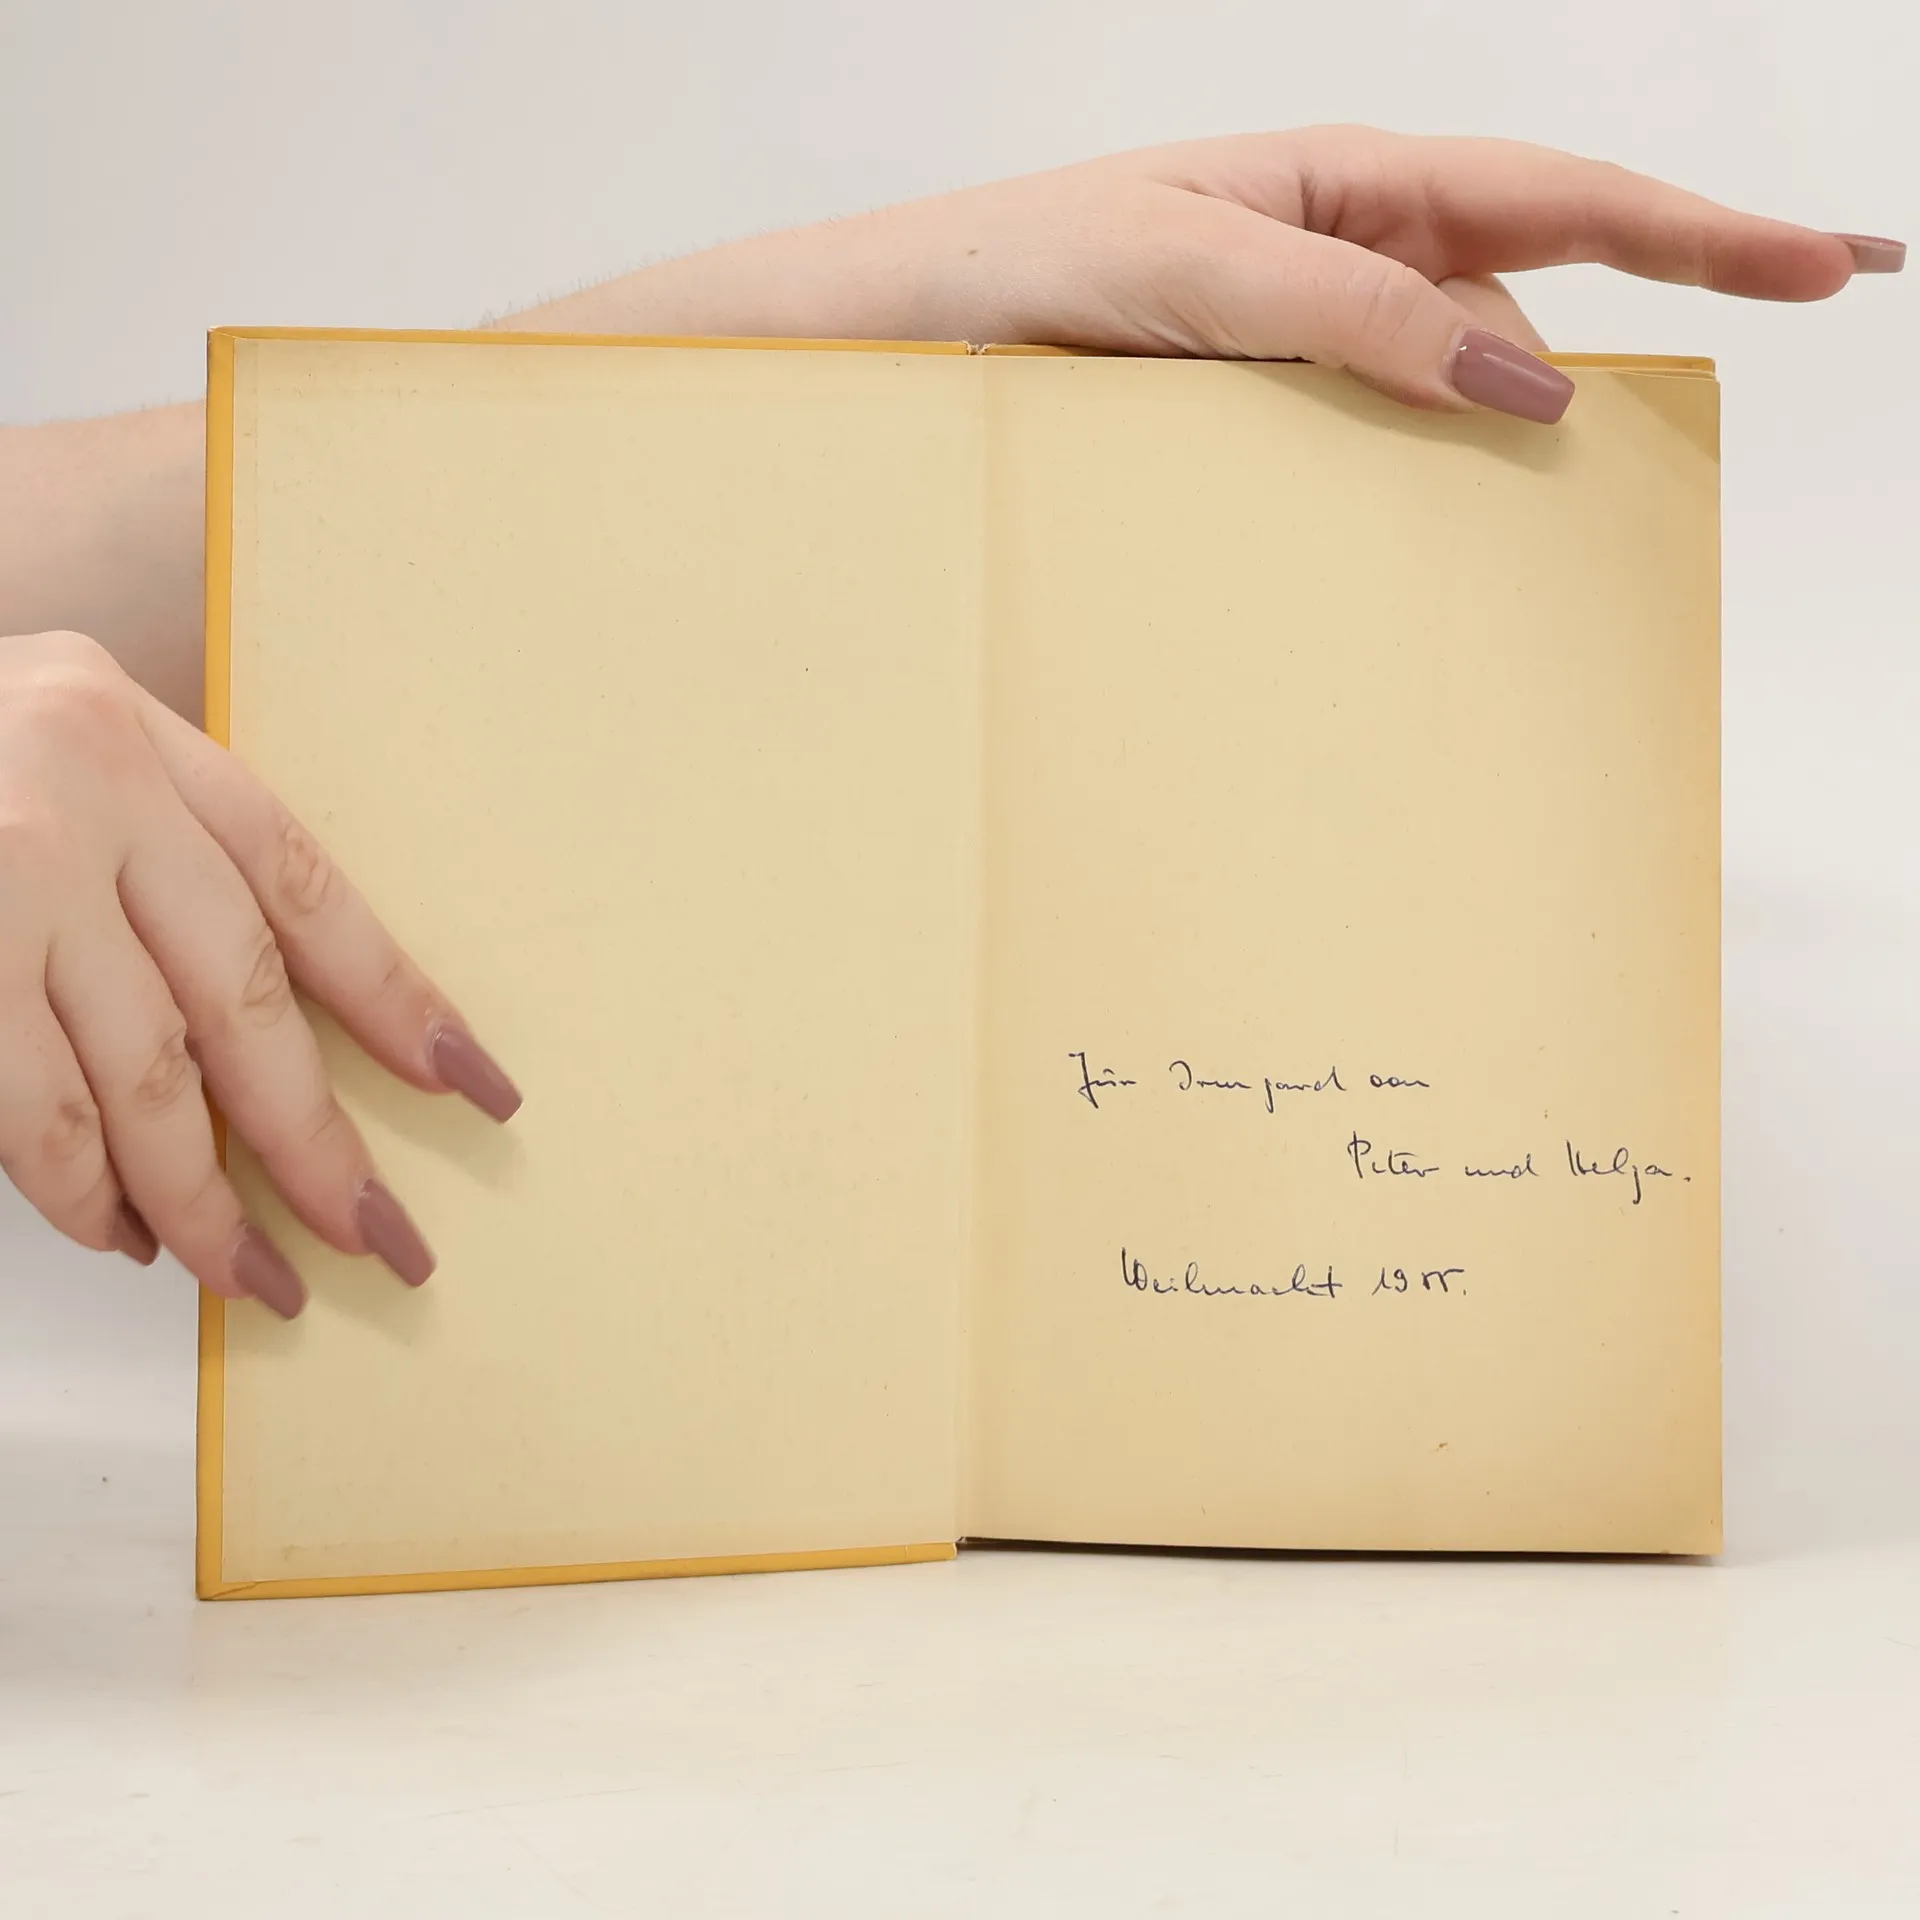 Für Irmgard von
Peter und Helga.
Weihnacht 1955.